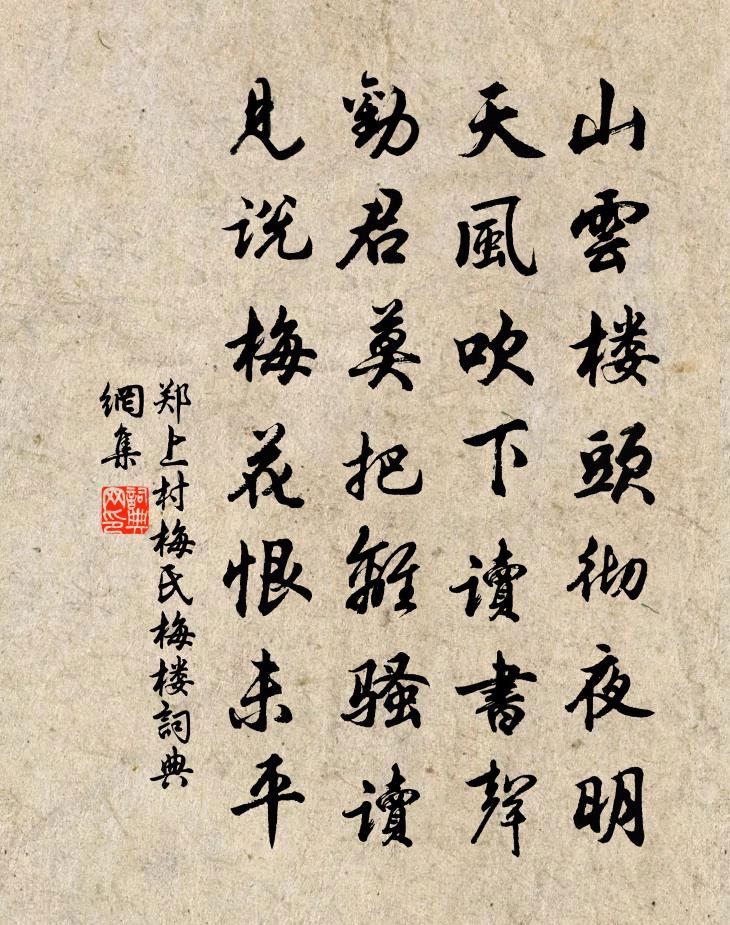 山雲楼頭彻夜明
天風吹下讀書聲
勸君莫把離骚讀
見說梅花恨未平
郑上村梅氏梅楼詞典
網集
詞典
网印